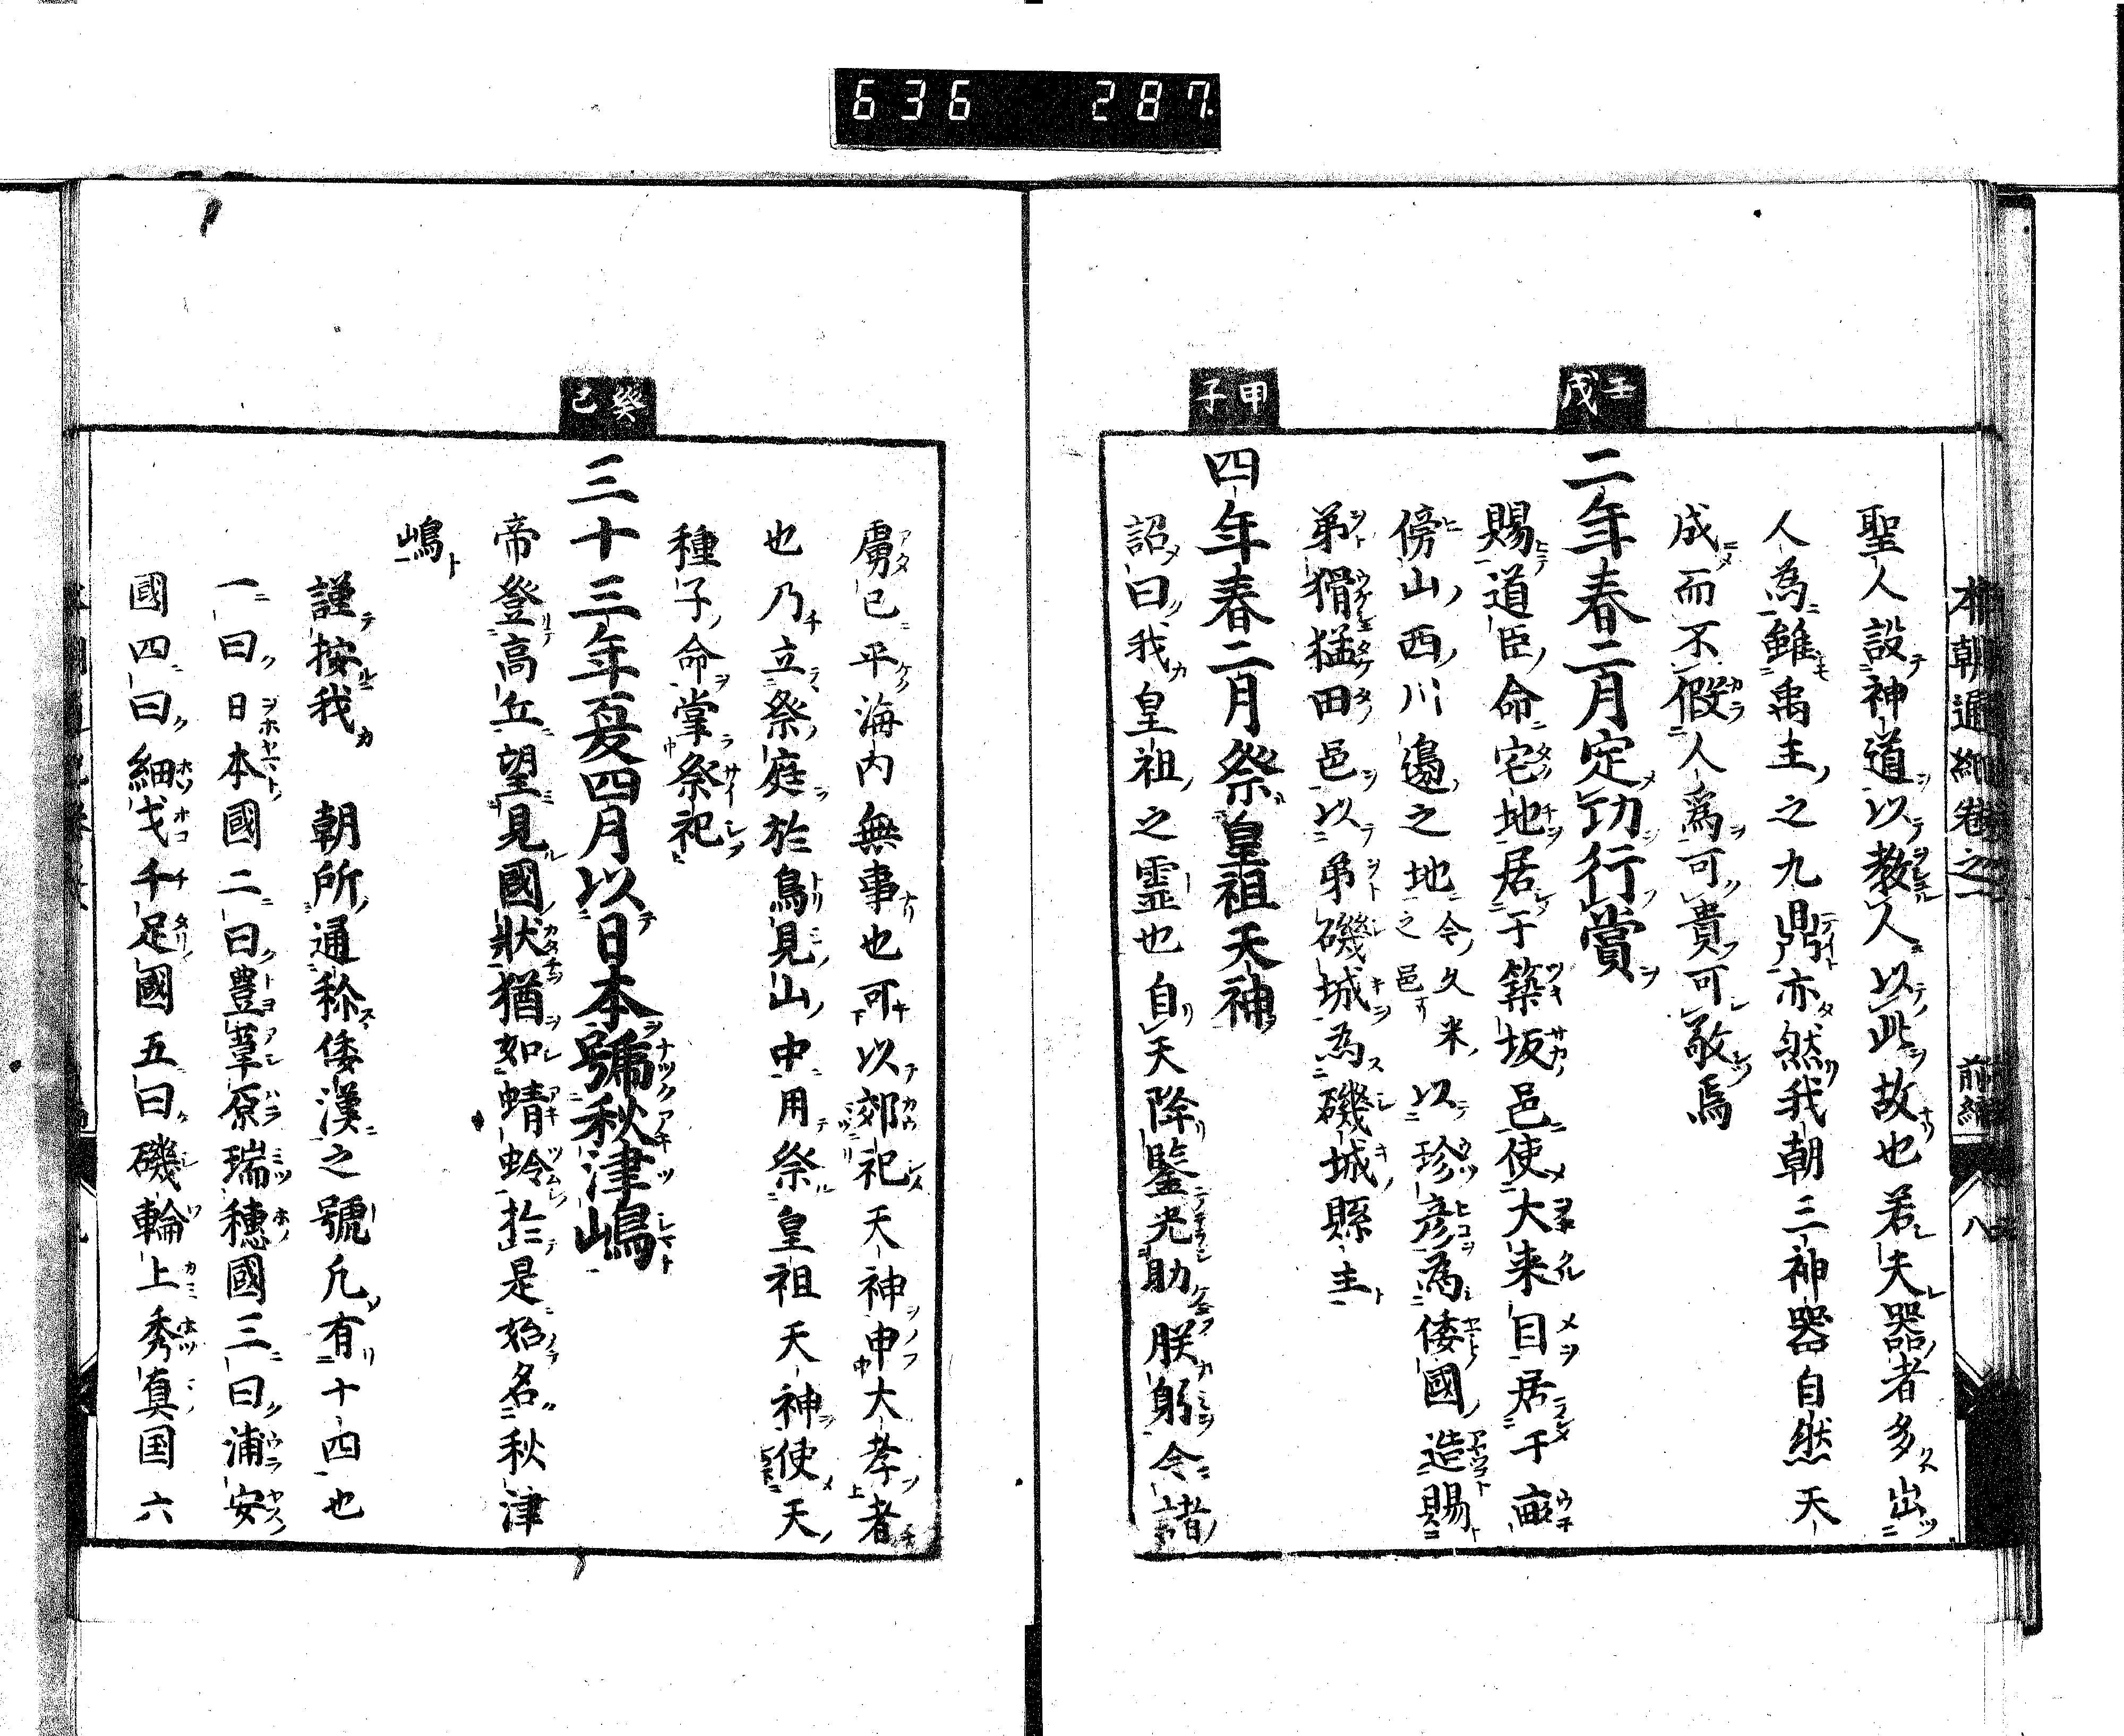 636 287
本朝通紀卷之一 前編 八
聖人設神道以教人以此故也若夫器者多出
人為雖禹主之九鼎亦然我朝三神器自然天
成而不假人為可貴可敬焉
壬戌
二年春二月定功行賞
賜道臣命宅地居于築坂邑使大來目居于畝
傍山西川邊之地今久米之邑以珍彦為倭國造賜
弟猾猛田邑以弟磯城為磯城縣主
甲子
四年春二月祭皇祖天神
詔曰我皇祖之霊也自天降鑒光助朕躬今諸
虜已平海内無事也可以郊祀天神申大孝者
也乃立祭庭於鳥見山中用祭皇祖天神使天
種子命掌祭祀
癸巳
三十三年夏四月以日本號秋津嶋
帝登高丘望見國狀猶如蜻蛉於是始名秋津
嶋
謹按我 朝所通称倭漢之號凡有十四也
一曰日本國二曰豊葦原瑞穗國三曰浦安
國四曰細戈千足國五曰磯輪上秀真国六